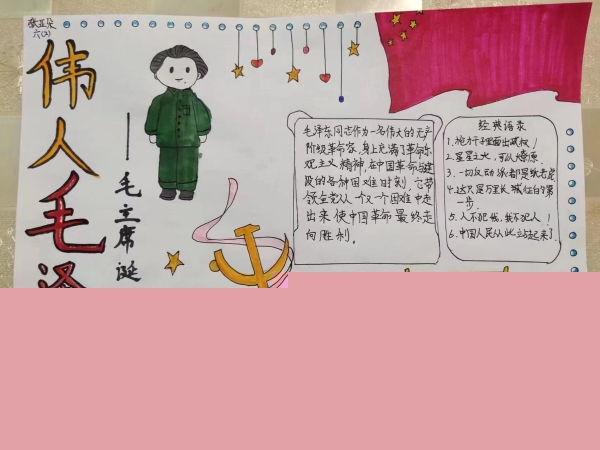 张亚朵
六(2)
伟人毛泽
——毛主席诞
毛泽东同志作为一名伟大的无产
阶级革命家,身上充满了革命乐
观主义精神,在中国革命与建
设的各种困难时刻,它带
领全党从一个又一个困难中走
出来使中国革命最终走
向胜利。
经典语录
1.枪杆子里面出政权!
2.星星之火,可以燎原
3.一切反动派都是纸老虎
4.这只是万里长城征的第
一步.
5.人不犯我,我不犯人!
6.中国人民从此站起来了.